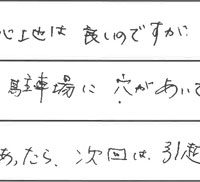 立地は良いのですが
駐車場に穴があいて
あったら、次回は、引越